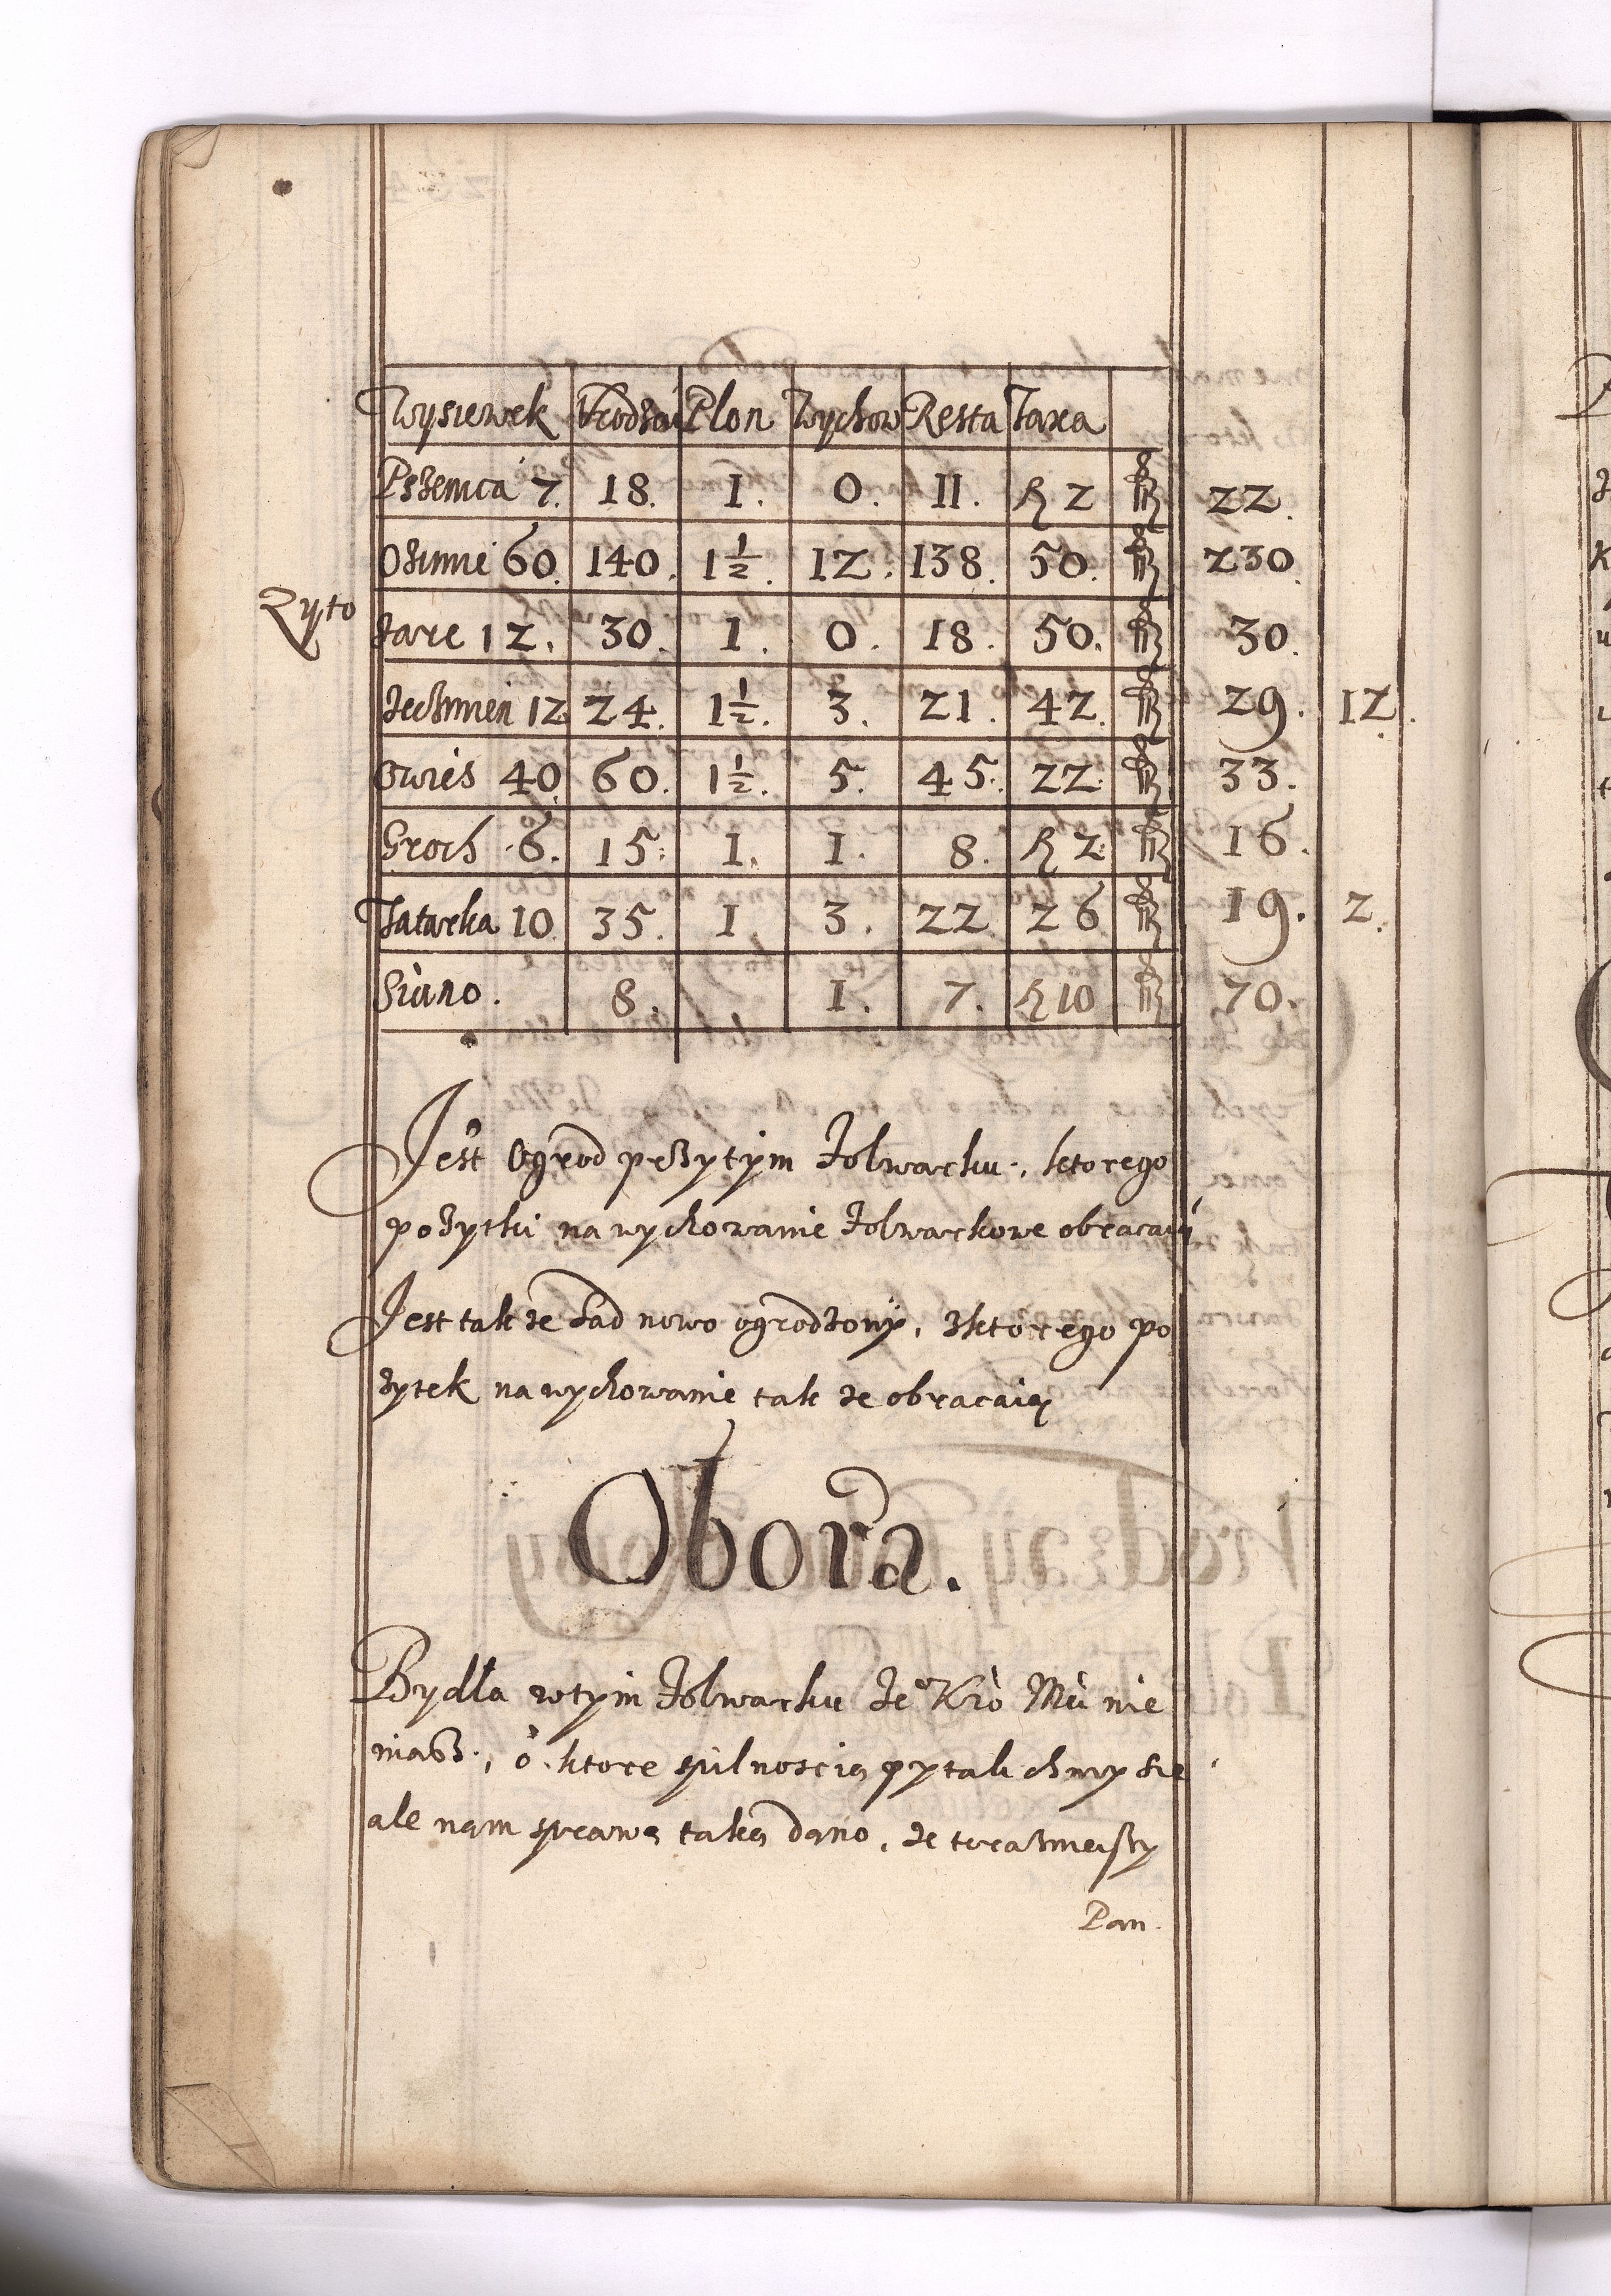 Wysiewek Vrodzai Plon Wychow Resta Taxa
Pszenica 7. 18. 1. 0. 11. 2 22.
Ozimie 60. 140. 1 1/2. 12. 138. 50. 230.
Zyto
Jare 12. 30. 1. 0. 18. 50. 30.
Jeczmien 12 24. 1 1/2. 3. 21. 42. 29. 12.
Owies 40. 60. 1 1/2. 5. 45. 22. 33.
Groch 6. 15. 1. 1. 8. 2. 16.
Tatarka 10. 35. 1. 3. 22. 26 19. 2.
Siano. 8. 1. 7. 10 70.
Jest Ogrod przytym folwarku, ktorego
pozytki na wychowanie folwarkowe obracaią
Jest tak ze Sad nowo ogrodzony, zktorego po
zytek na wychowanie tak ze obracaią
Obora.
Bydła wtym folwarku Je° Kró Mći nie
masz, o ktore spilnoscią pytalichmy sie
ale nam sprawę taką dano, ze terazniejszy
Pan.